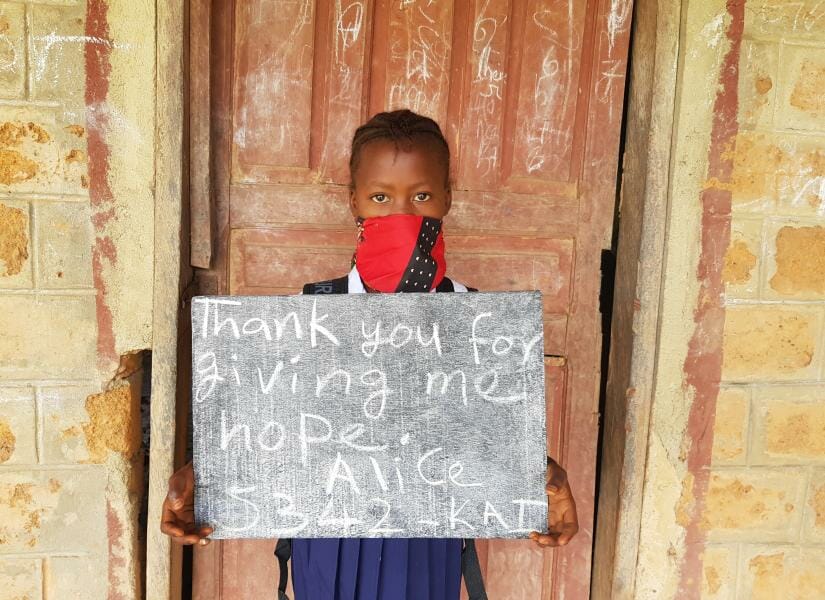 Thank you for
giving me
hope.
Alice
5342-KAI